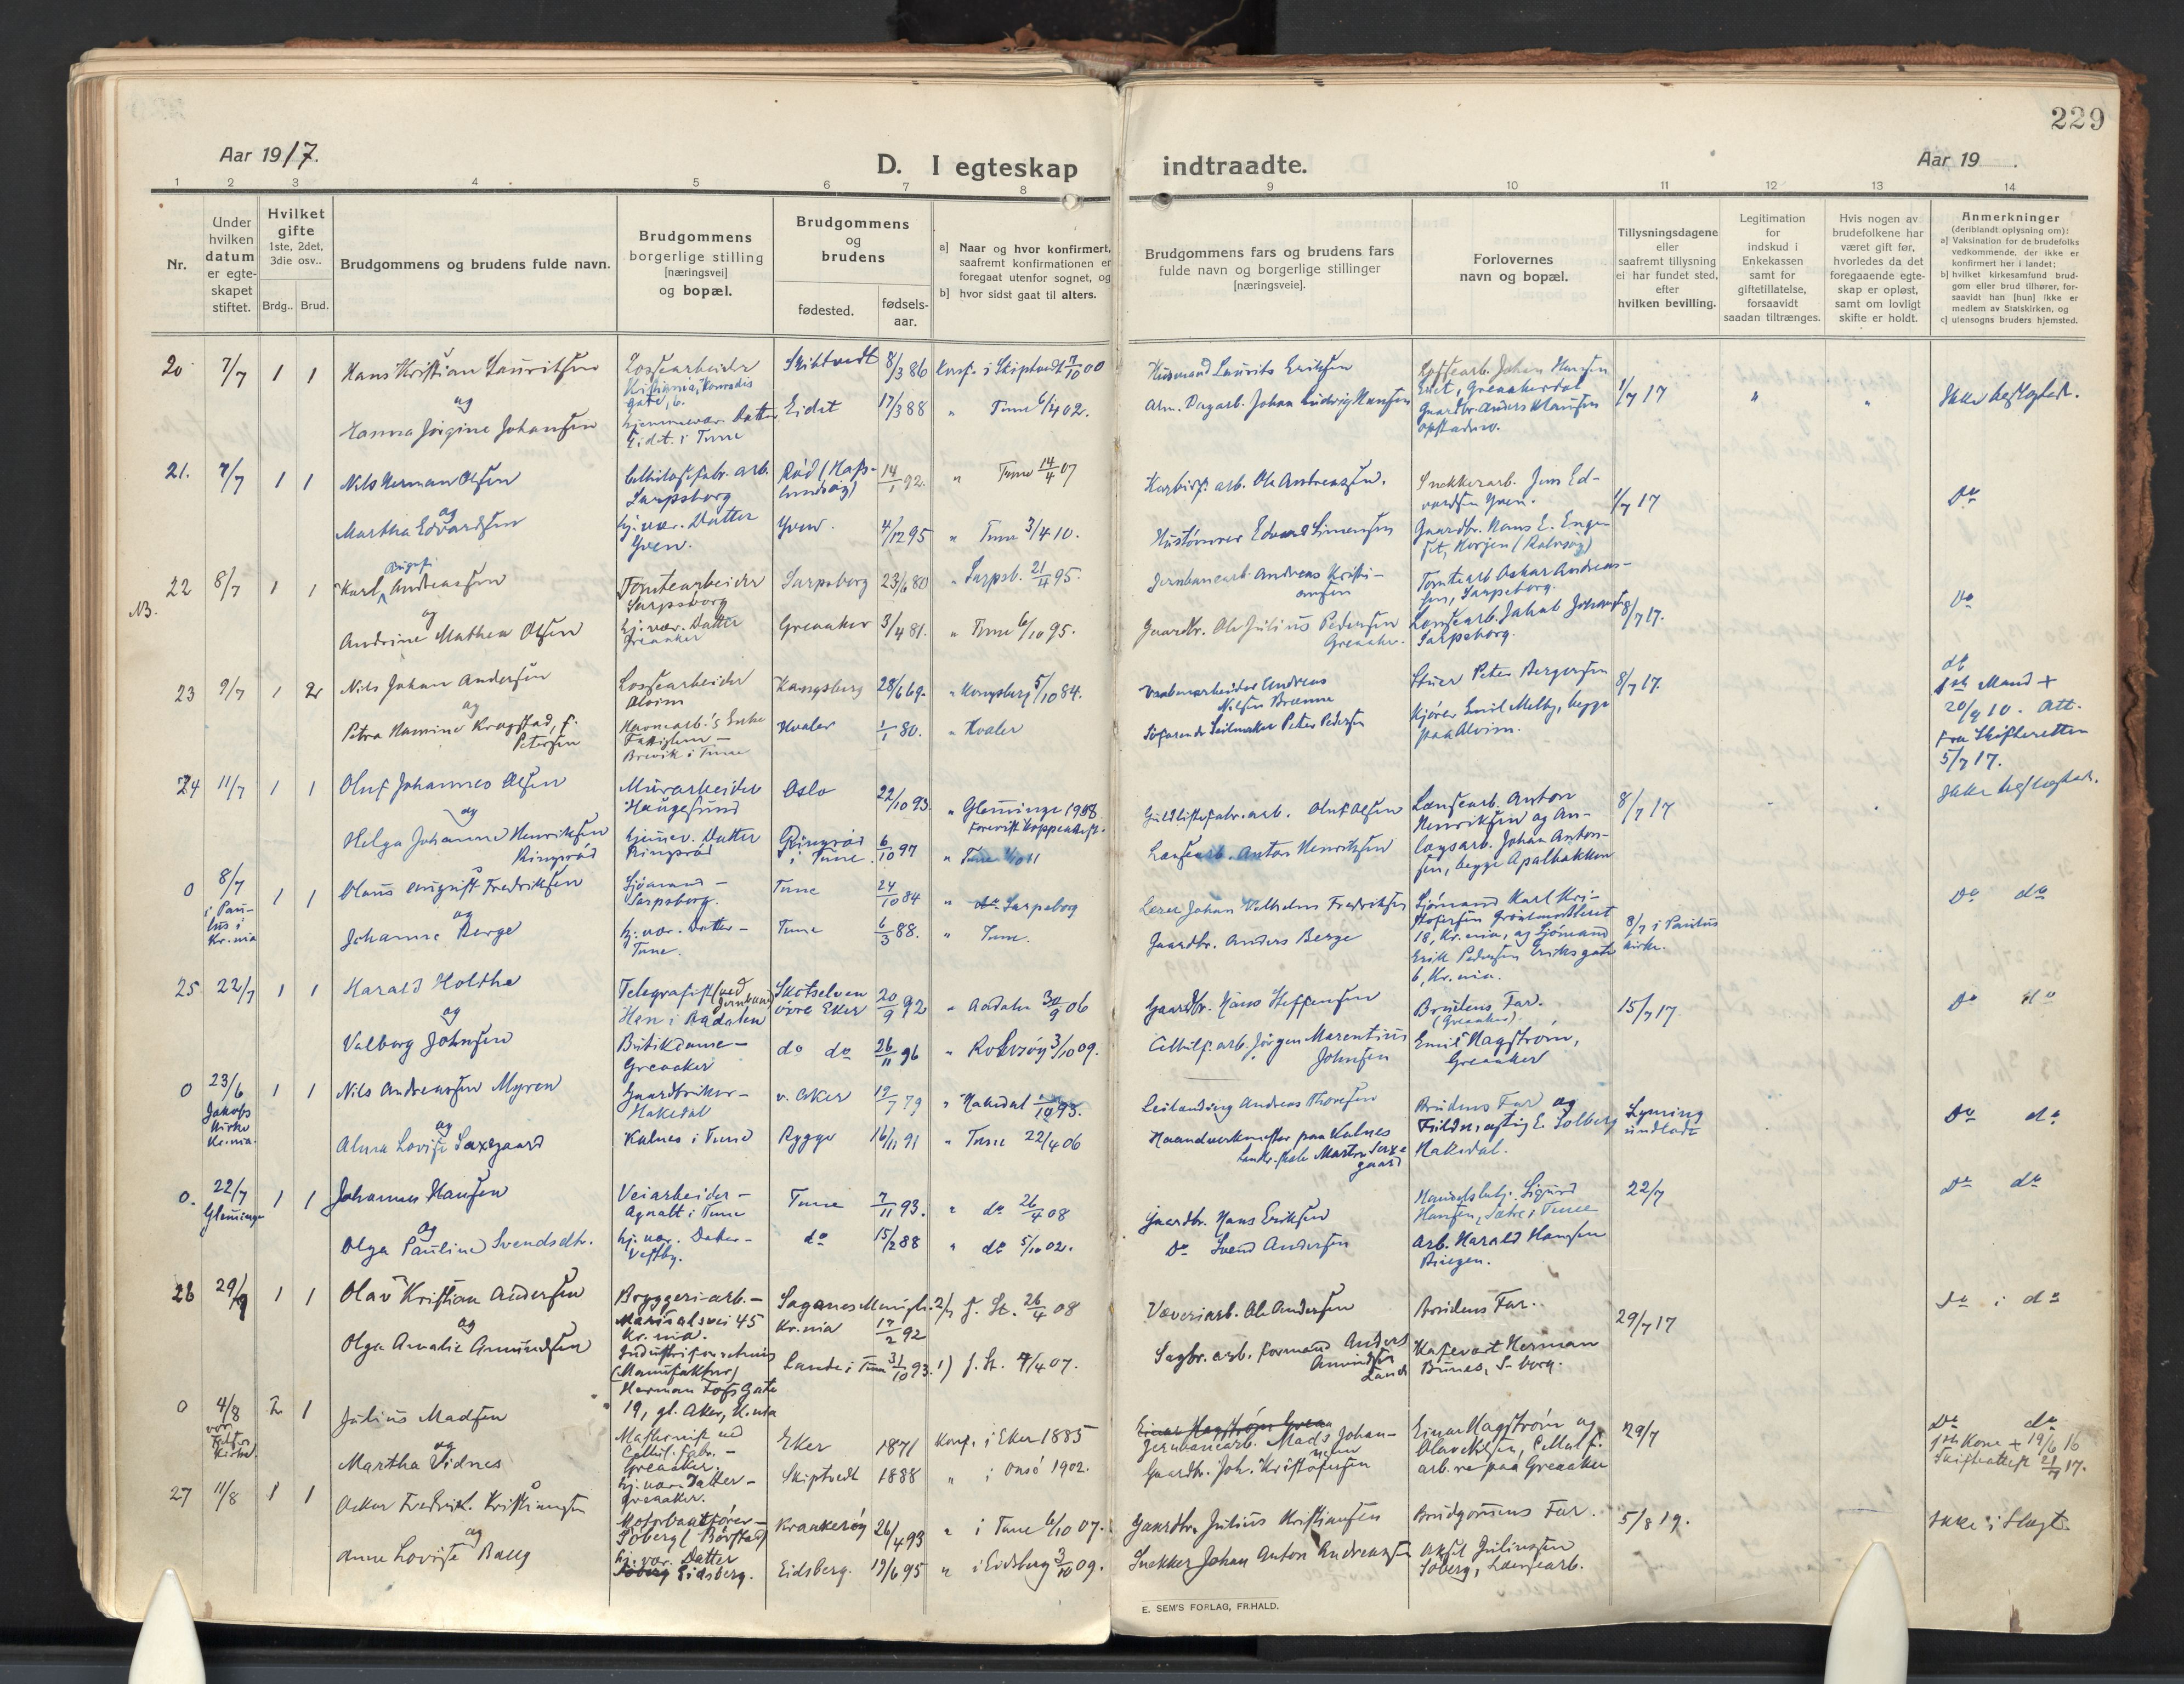 229
Aar 1917.
D. I egteskap indtraadte.
Aar 19 .
1 2 3 4 5 6 7 8 9 10 11 12 13 14
Nr.
Under hvilken datum er egteskapet stiftet.
Hvilket gifte
1ste, 2det, 3die osv..
Brdg.. Brud.
Brudgommens og brudens fulde navn.
Brudgommens borgerlige stilling [næringsvei] og bopæl.
Brudgommens og brudens
fødested.
fødsels-aar.
a] Naar og hvor konfirmert, saafremt konfirmationen er foregaat utenfor sognet, og
b] hvor sidst gaat til alters.
Brudgommens fars og brudens fars fulde navn og borgerlige stillinger [næringsveie].
Forlovernes navn og bopæl.
Tillysningsdagene eller saafremt tillysning ei har fundet sted, efter hvilken bevilling.
Legitimation for indskud i Enkekassen samt for giftetillatelse, forsaavidt saadan tiltrænges.
Hvis nogen av brudefolkene har været gift før, hvorledes da det foregaaende egteskap er opløst, samt om lovligt skifte er holdt.
Anmerkninger
(deriblandt oplysning om):
a] Vaksination for de brudefolks vedkommende, der ikke er konfirmert her i landet;
b] hvilket kirkesamfund brudgom eller brud tilhører, forsaavidt han [hun] ikke er medlem av Statskirken, og
c] utensogns bruders hjemsted.
20 7/7 1 1 Hans Kristian Lauritsen Lossearbeider Kristiania, Skibtvedt 8/3 86 Konf. i Skiptvedt 7/10 00 Husmand Laurits Eriksen
og
Hanna Jörgine Johansen Datter Eidet i Tune Eidet 17/3 88 " Tune 6/4 02. Johan Ludvig Hansen Greaakerdal 1/7 17 " "
21. 7/7 1 1 Nils Herman Olsen Sarpsborg 14/1 92. " Tune 14/4 07 arb. Ole Andreassen. Snekkerarb. Jens Edvardsen Yven. 1/7 17 Do
og
Martha Edvardsen hj. vær. Datter Yven. Yven. 4/12 95 " Tune 3/4 10. Edvard Simensen Gaardbr. Hans E.
22 NB. 8/7 1 1 Karl Birger Andreassen Tomtearbeider Sarpsborg Sarpsborg 23/6 80 " Sarpsb. 21/4 95. Jernbanearb. Andreas Kristiansen Tomtearb. Oskar Andreassen, Sarpsborg. 8/7 17. Do
og
Andrine Mathea Olsen hj. vær. Datter Greaaker Greaaker 3/4 81. " Tune 6/10 95. Gaardbr. Ole Julius Pedersen Greaaker. Jakob Johansen Sarpsborg.
23 9/7 1 2 Nils Johan Andersen Lossearbeider Alvim Kongsberg 28/6 69. " Kongsberg 5/10 84. Vaabenarbeider Andreas Nilsen Stuer Peter Bergersen 8/7 17. do
og
Petra Hamine Krogstad, f. Petersen Havnearb.'s Enke Brevik i Tune Hvaler 1/1 80. " Hvaler Seilmaker Peter Pedersen Kjører Emil Melby, begge paa Alvim. 1ste Mand + 20/9 10. Att. fra Skifteretten 5/7 17.
24 11/7 1 1 Oluf Johannes Olsen Murarbeider Haugesund Oslo 22/10 93. " Glemminge 1908 Oluf Olsen Lænsearb. Anton Henriksen og Anlægsarb. Johan Antonsen, begge Apalbakken 8/7 17
og
Helga Johanne Henriksen Ringsrød hjemmev. Datter Ringsrød Ringsrød i Tune 6/10 97 " Tune Lænsearb. Anton Henriksen
0 8/7 i Paulus i Kr.nia 1 1 Olaus August Fredriksen Sjømand - Sarpsborg. Tune 24/10 84 " Sarpsborg Johan Vilhelm Fredriksen Sjømand Karl Kristofersen 18, Kr.nia, og Sjømand Erik Pedersen Eriks gate 6, Kr.nia. 8/7 i Paulus kirke. Do do
og
Johanne Berge hj. vær. Datter - Tune. Tune 6/3 88. " Tune. Gaardbr. Anders Berge
25 22/7 1 1 Harald Holthe Telegrafist (ved Jernbane) Hen i Aadalen Skotselven øvre Eker 20/9 92 " Aadalen 30/9 06 Gaardbr. Hans Steffensen Brudens Far. (Greaaker). 15/7 17. Do do
og
Valborg Johnsen Butikdame - Greaaker do do 26/11 96 " Rolvsøy 3/10 09. Jörgen Marentius Johnsen Emil Hagström, Greaaker
0 23/6 Jakobs Kirke Kr.nia. 1 1 Nils Andreassen Myren Gaardbruker - Hakedal v. Aker 19/7 79 " Hakedal Andreas Thoresen Brudens Far og E. Solberg Hakedal. Lysning undladt Do do
og
Alma Lovise Saxegaard Kalnes i Tune Rygge 16/11 91 " Tune 22/4 06 paa Kalnes Landbr.skole Martin Saxegaard
0. 22/7 Glemminge 1 1 Johannes Hansen Veiarbeider - Agnalt i Tune Tune 7/11 93. " do 26/4 08 Gaardbr. Hans Eriksen Sigurd Hansen, i Tune 22/7 Do do
og
Olga Pauline Svendsdtr. hj. vær. Datter - Vestby. do 15/2 88 " do 5/10 02. Do Svend Andersen Arb. Harald Hansen
26 29/7 1 1 Olav Kristian Andersen Bryggeriarb. - Maridalsvei 45 Kr.nia. Sagenes Menigh. Kr.nia 17/2 92 2/ f. St. 26/4 08 Væveriarb. Ole Andersen Brudens Far. 29/7 17 Do i do
og
Olga Amalie Amundsen (Manufaktur) Herman Foss Gate 19, gl. Aker, Kr.nia Lande i Tune 31/10 93. 1) f. St. 7/4 07. Sagbr. arb. formand Anders Amundsen Lande Kafevert Herman Bunes, S-borg.
0 4/8 vor Frelsers Kirke. 2 1 Julius Madsen Maskinist ved Cellul. fabr. - Greaaker. Eker 1871 Konf. i Eker 1885 Jernbanearb. Mads Johansen Einar Hagström og Olav Nilsen, Cellulf. arb.re paa Greaaker 29/7 Do do
og
Martha Vidnes hj. vær. Datter - Greaaker. Skiptvedt 1888 " i Onsö 1902. Gaardbr. Joh. Kristofersen 1ste Kone + 19/6 16 Skifteattest 21/7 17.
27 11/8 1 1 Oskar Fredrik Kristiansen Motorbaatfører - Soberg Kraakerøy 26/4 93 " i Tune 6/10 07. Gaardbr. Julius Kristiansen Brudgommens Far. 5/8 19.
og
Anna Lovise Berg hj. vær. Datter Eidsberg. Eidsberg. 19/6 95 " i Eidsberg 3/10 09. Snekker Johan Anton Andreassen Aksel Juliussen Soberg, Lænsearb.
E. SEM'S FORLAG, FR.HALD.